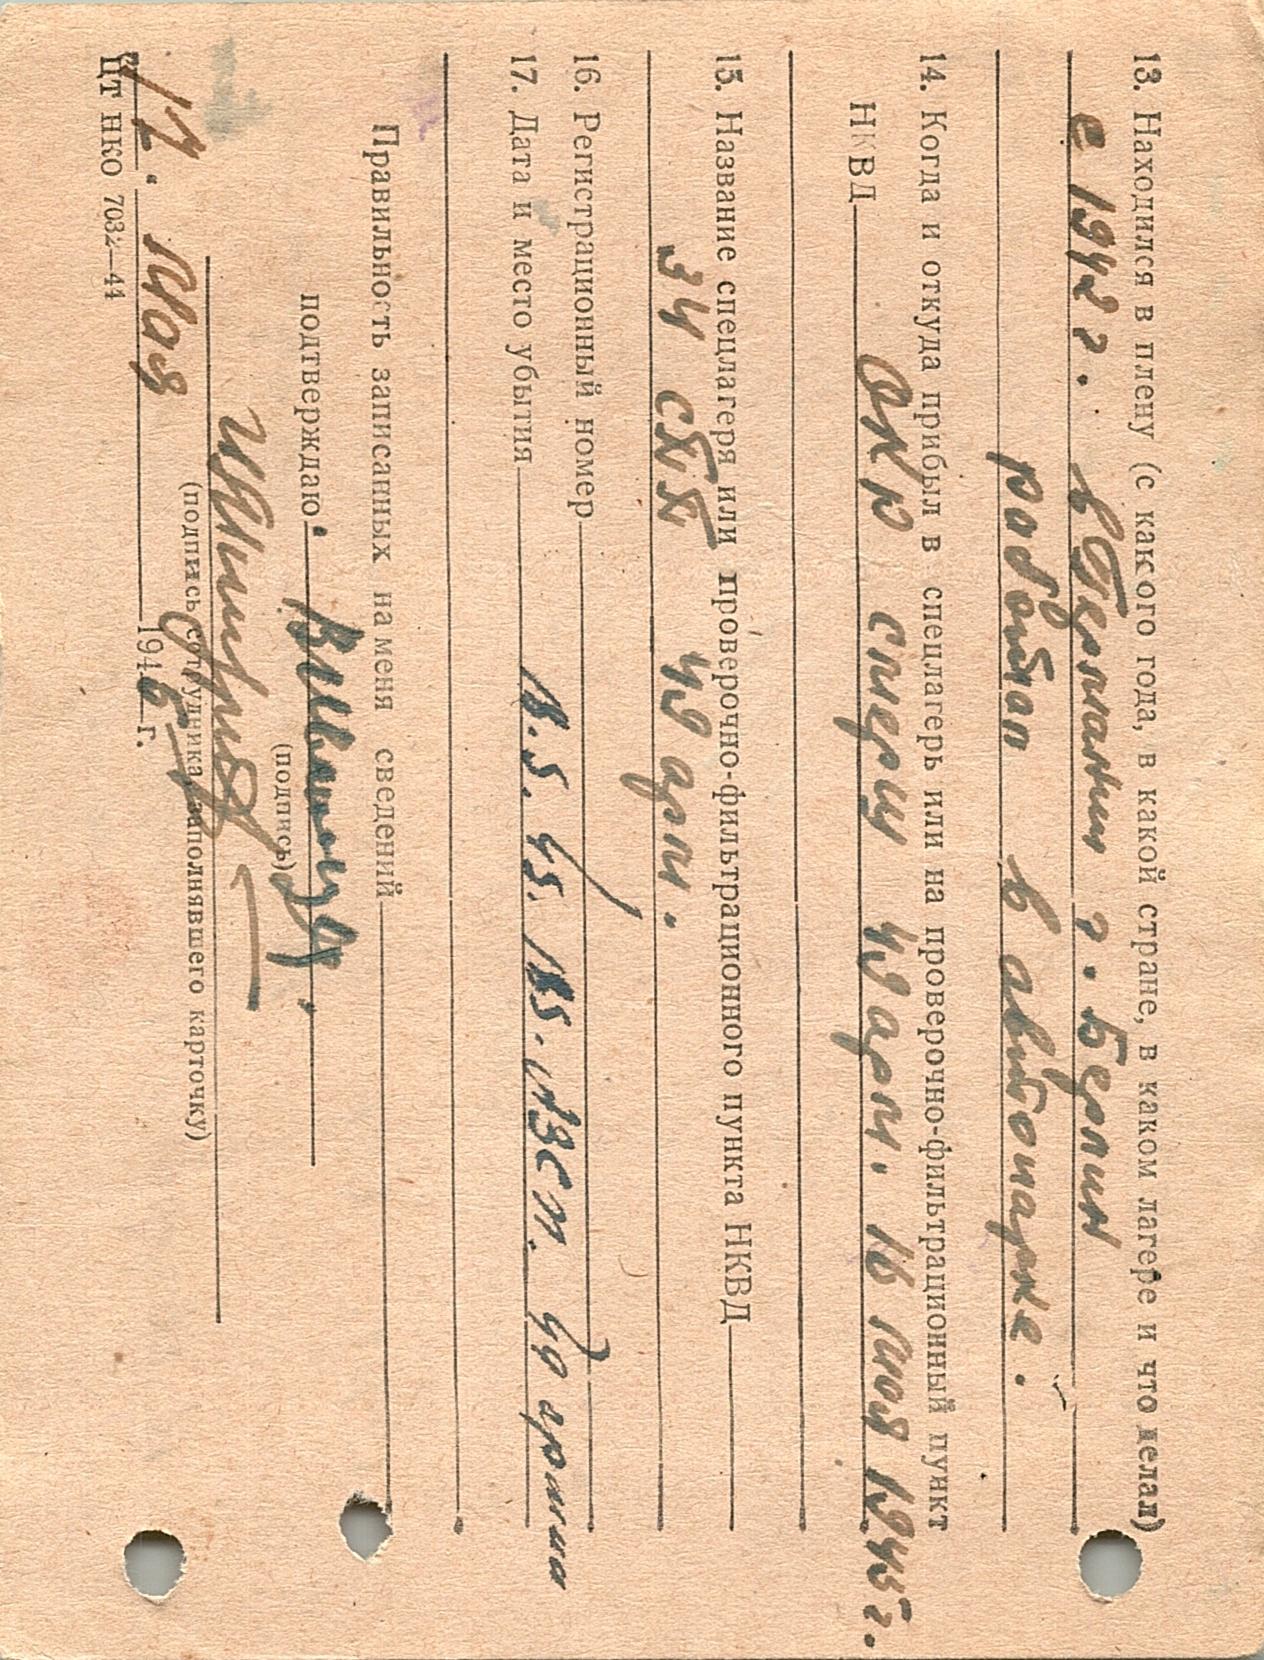 13. Находился в плену (с какого года, в какой стране, в каком лагере и что делал)
с 1942 г. в Германии г. Берлин
работал в автопарке.
14. Когда и откуда прибыл в спецлагерь или на проверочно-фильтрационный пункт
НКВД ОКР смерш 49 арм. 16 мая 1945 г.
15. Название спецлагеря или проверочно-фильтрационного пункта НКВД
34 СПП 49 арм.
16. Регистрационный номер
17. Дата и место убытия 18.5.45. 185. АЗСП. 49 армии
Правильность записанных на меня сведений
подтверждаю
(подпись)
(подпись сотрудника, заполнявшего карточку)
"17" мая 1945 г.
ЦТ НКО 7032—44